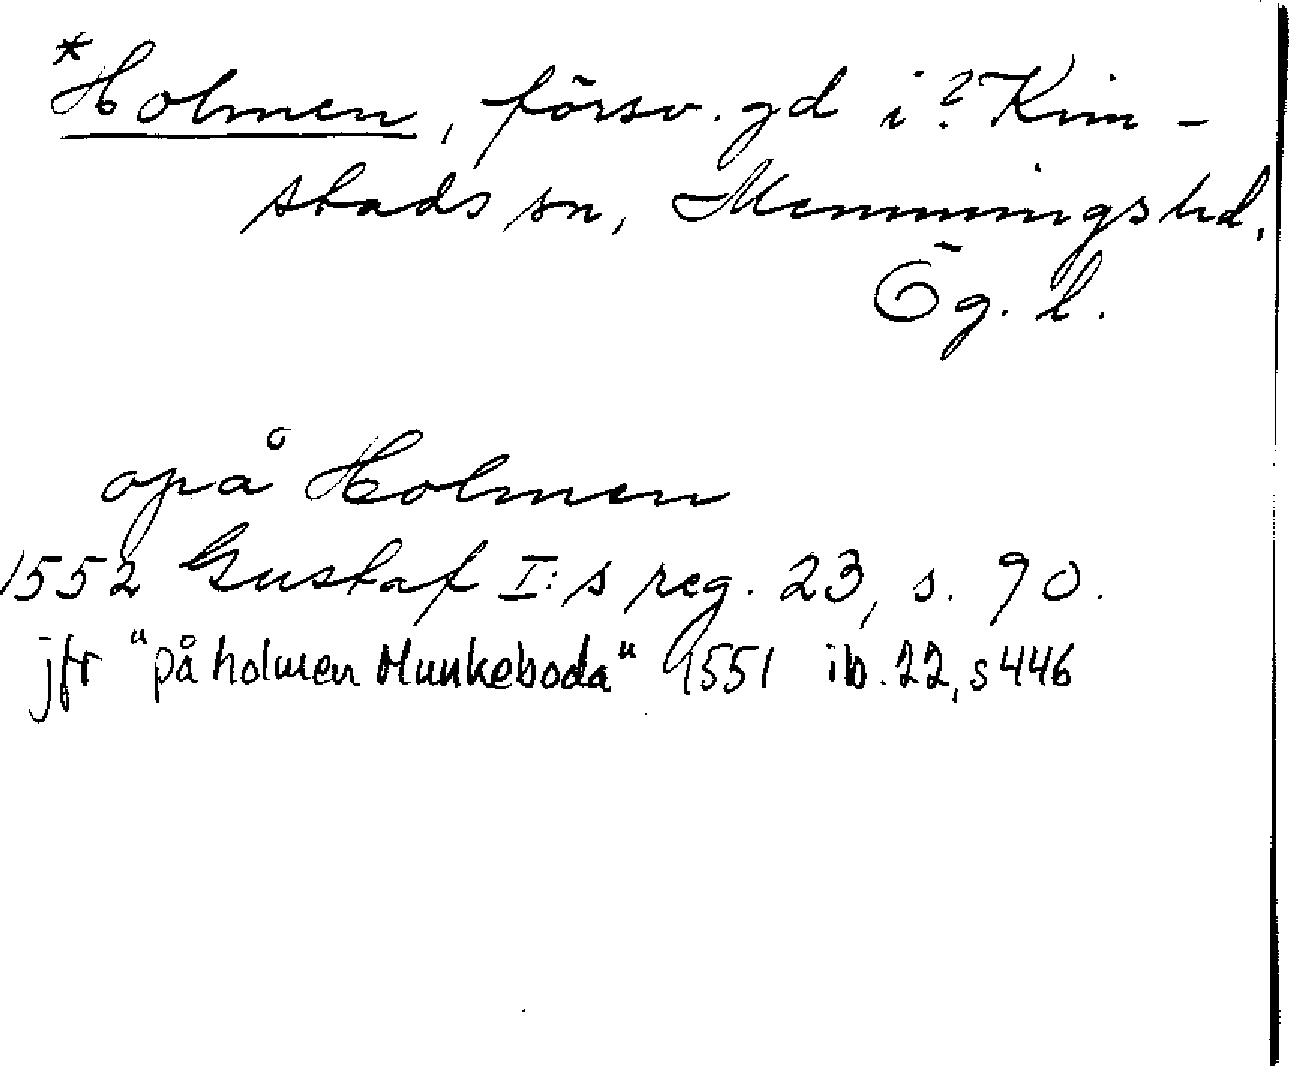 *Holmen, försv. gd i ? Kim-
stads sn, Memmings hd,
Ög. l.
opå Holmen
1552 Gustaf I:s reg. 23, s. 90.
jfr "på holmen Munkeboda" 1551 ib. 22, s 446